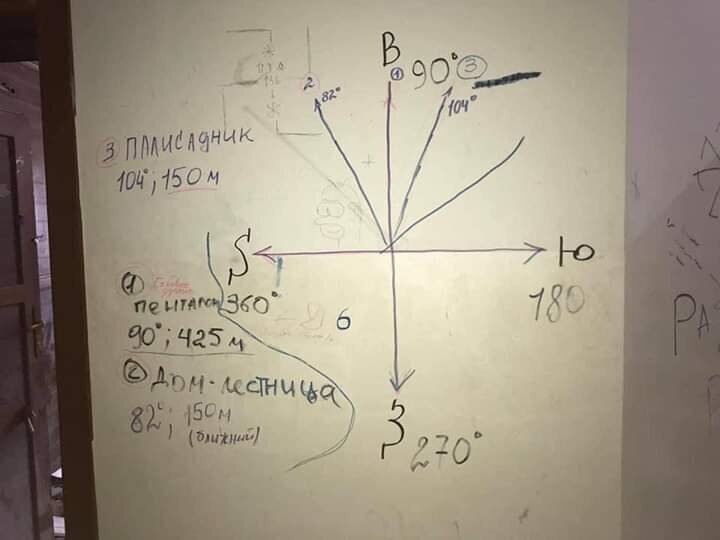 В
① 90° ③
2
82°
104°
3 ПАЛИСАДНИК
104°; 150 м
S
Ю
180
① 
ПЕНТАГОН 360°
90°; 425 м
6
② ДОМ-ЛЕСТНИЦА
82°; 150 м
(ближний)
З
270°
РА